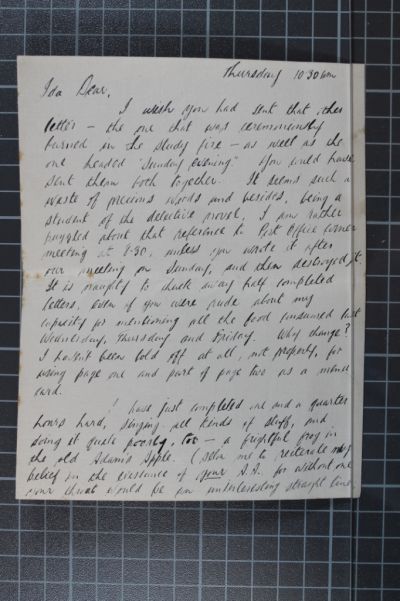 Thursday 10.30 am
Ida Dear,
I wish you had sent that other
letter – the one that was ceremoniously
burned in the study fire – as well as the
one headed "Sunday evening." You could have
sent them both together. It seems such a
waste of precious words and besides, being a
student of the detective novel, I am rather
puzzled about that reference to Post Office corner
meeting at 8.30, unless you wrote it after
our meeting on Sunday, and then destroyed it.
It is naughty to chuck away half completed
letters, even if you were rude about my
capacity for mentioning all the food consumed last
Wednesday, Thursday and Friday. Why change?
I haven't been told off at all, not properly, for
using page one and part of page two as a menu
card.
I have just completed one and a quarter
hours hard, singing all kinds of stuff, and
doing it quite poorly, too – a frightful frog in
the old Adam's Apple. (Allow me to reiterate my
belief in the existence of your A.A. for without one
your throat would be an uninteresting straight line